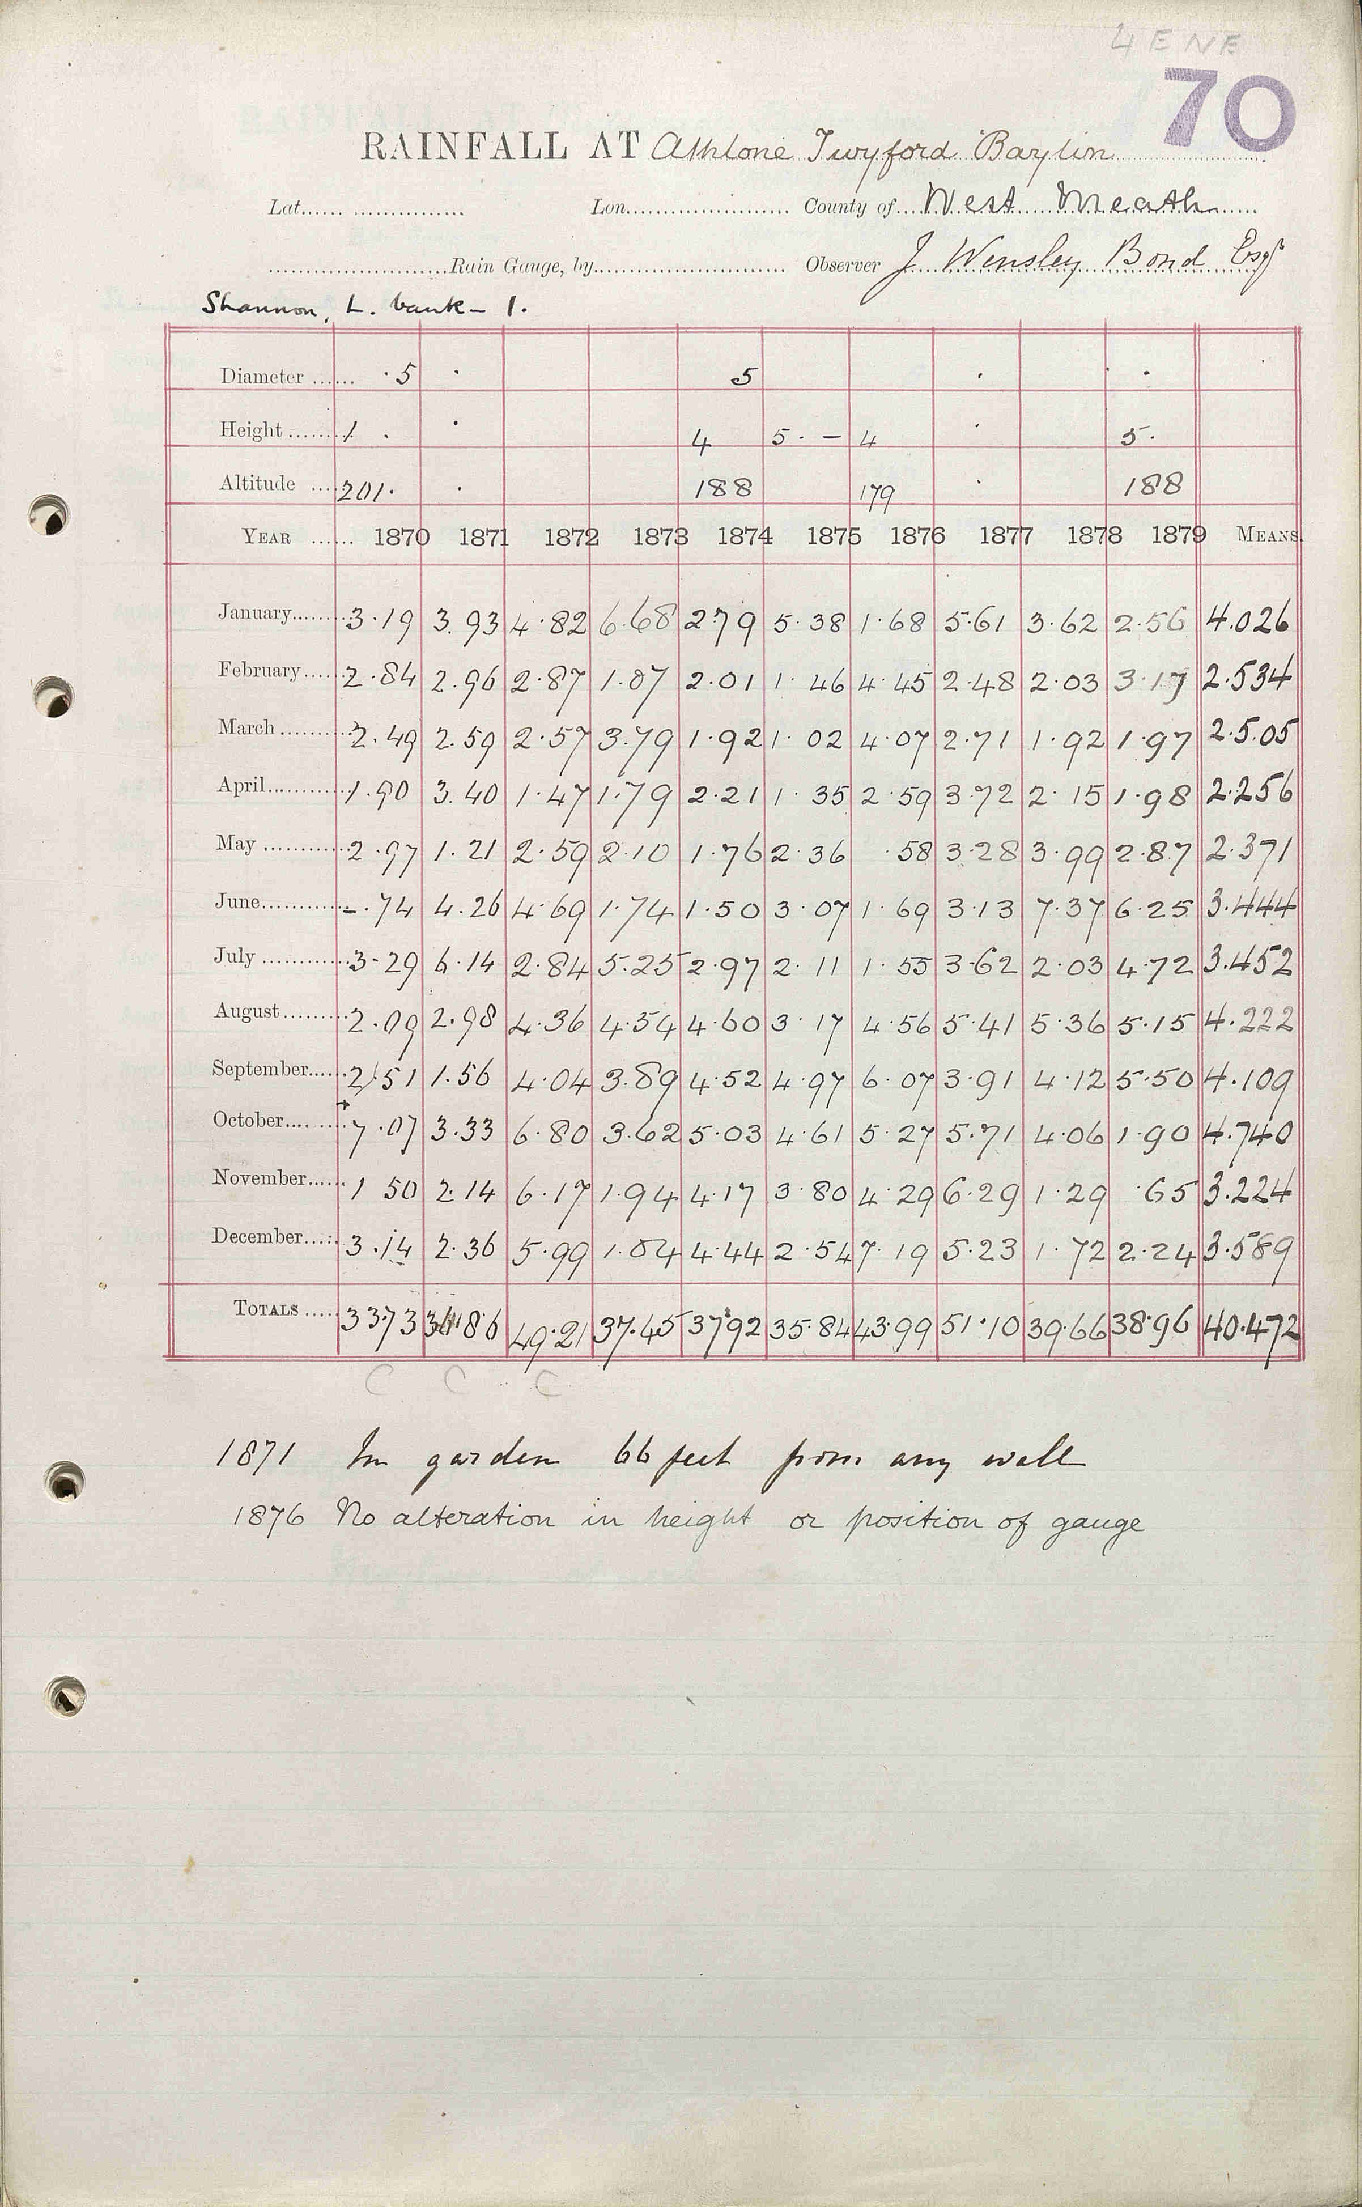 4 E NE
70
RAINFALL AT Athlone Twyford Baylin
Lat. Lon. County of West Meath
Rain Gauge, by Observer J. Wensley Bond Esqr
Shannon, L. bank - 1.
Diameter 5 . 5 . .
Height 1 . . 4 5 . - 4 . 5.
Altitude 201. . 188 179 . 188
YEAR 1870 1871 1872 1873 1874 1875 1876 1877 1878 1879 MEANS.
January 3.19 3.93 4.82 6.68 2.79 5.38 1.68 5.61 3.62 2.56 4.026
February 2.84 2.96 2.87 1.07 2.01 1.46 4.45 2.48 2.03 3.17 2.534
March 2.49 2.59 2.57 3.79 1.92 1.02 4.07 2.71 1.92 1.97 2.505
April 1.90 3.40 1.47 1.79 2.21 1.35 2.59 3.72 2.15 1.98 2.256
May 2.97 1.21 2.59 2.10 1.76 2.36 .58 3.28 3.99 2.87 2.371
June -.74 4.26 4.69 1.74 1.50 3.07 1.69 3.13 7.37 6.25 3.444
July 3.29 6.14 2.84 5.25 2.97 2.11 1.55 3.62 2.03 4.72 3.452
August 2.09 2.98 4.36 4.54 4.60 3.17 4.56 5.41 5.36 5.15 4.222
September 2.51 1.56 4.04 3.89 4.52 4.97 6.07 3.91 4.12 5.50 4.109
October 7.07 3.33 6.80 3.62 5.03 4.61 5.27 5.71 4.06 1.90 4.740
November 1 50 2.14 6.17 1.94 4.17 3.80 4.29 6.29 1.29 .65 3.224
December 3.14 2.36 5.99 1.04 4.44 2.54 7.19 5.23 1.72 2.24 3.589
TOTALS 33.73 36.86 49.21 37.45 37.92 35.84 43.99 51.10 39.66 38.96 40.472
C C C
1871 In garden 66 feet from any wall
1876 No alteration in height or position of gauge